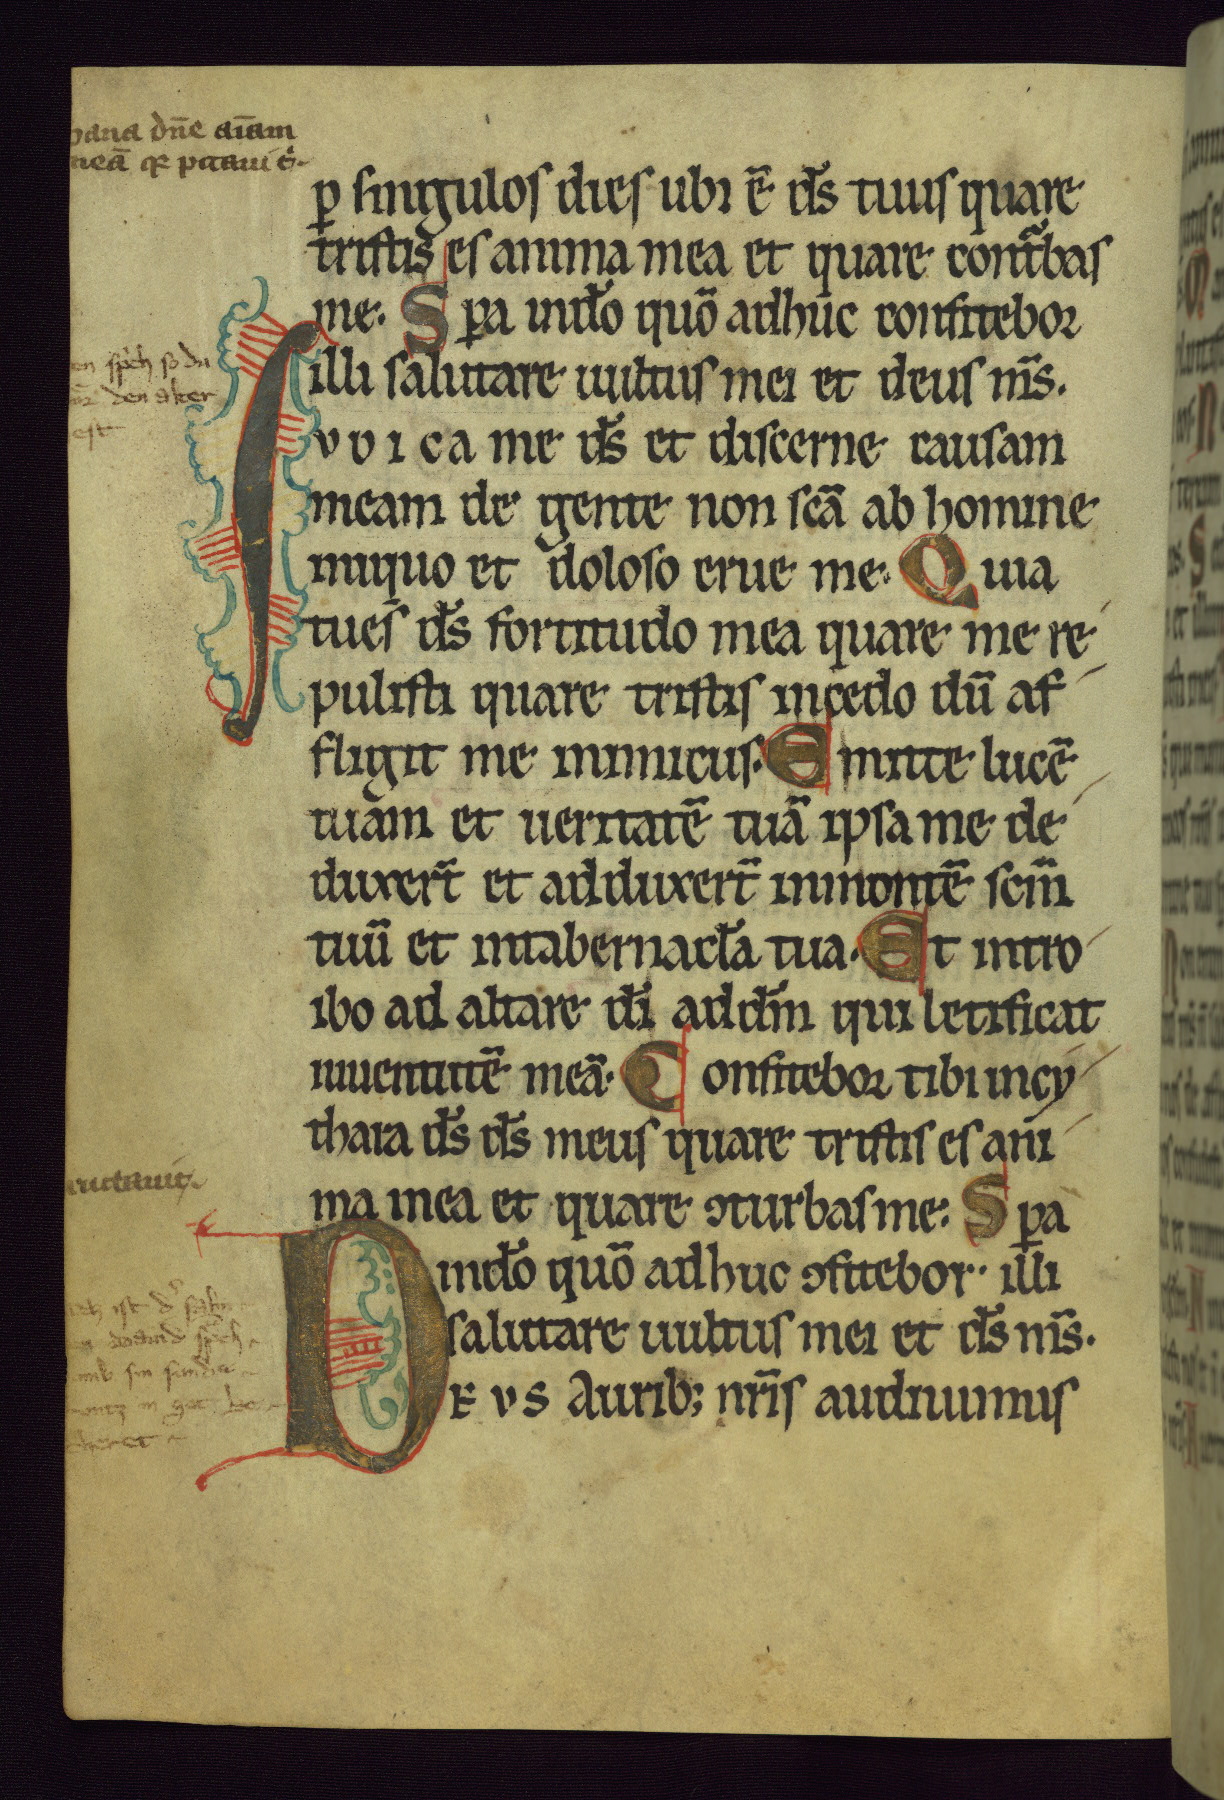 dn̄e aīam
meā qr peccaui t̄
ꝑ singulos dies ubi ē ds̄ tuus quare
tristis es anima mea et quare contᷓbas
me. Spera indō quō adhuc confitebor
illi salutare uultus mei et deus nr̄s.
Ivdica me ds̄ et discerne causam
meam de gente non scā ab homine
iniquo et doloso erue me. Quia
tu es ds̄ fortitudo mea quare me re
pulisti quare tristis incedo dū af
fligit me inimicus. Emitte lucē
tuam et ueritatē tuā ipsa me de
duxert̄ et adduxert̄ in montē scm̄
tuū et in tabernacl̄a tua. Et intro
ibo ad altare dī ad dm̄ qui letificat
iuuentutē meā. Confitebor tibi in cy
thara ds̄ ds̄ meus quare tristis es ani
ma mea et quare ꝯturbas me. Sꝑa
indō quō adhuc ꝯfitebor illi
salutare uultus mei et ds̄ nr̄s.
Devs Aurib; nr̄is audiuimus
sp̄ch so du
den alter
est
ructauit
ist